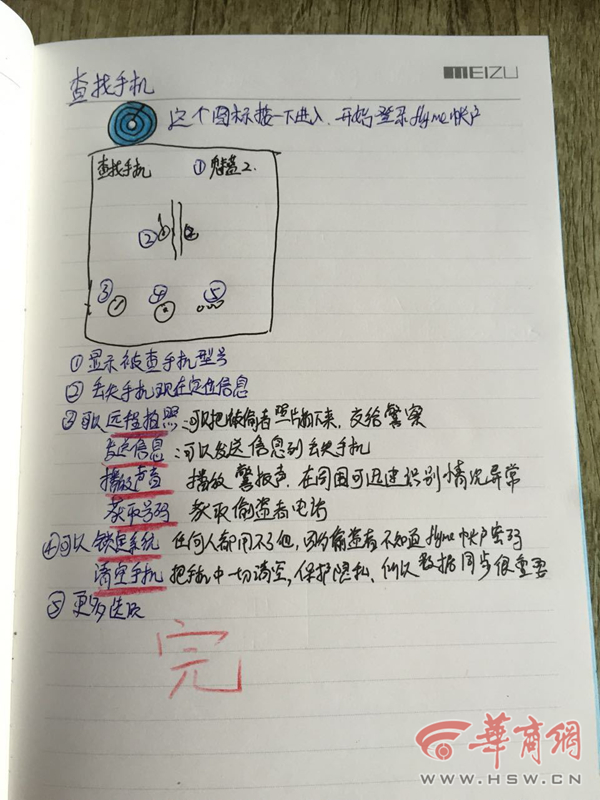 MEIZU
查找手机
这个图标按一下进入.开始登录flyme帐户
查找手机 ①魅蓝2.
②
③ ④ ⑤
①显示被查手机型号
②丢失手机现在定位信息
③可以远程拍照:可以把偷者照片拍下来,交给警察
发送信息:可以发送信息到丢失手机
播放声音 播放警报声.在周围可迅速识别情况异常
获取号码 获取偷盗者电话
④可以锁定系统 任何人都用不了他,因为偷盗者不知道flyme帐户密码
清空手机 把手机中一切清空,保护隐私.所以数据同步很重要
⑤更多选取
完
華商網
WWW.HSW.CN